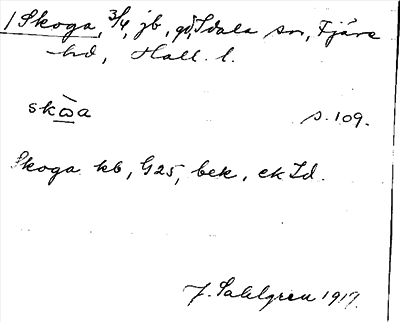 1 Skoga, 3/4, jb, gd, Idala sn, Fjäre
hd, Hall. l.
skὼa s. 109.
Skoga kb, G25, bek, ek Id.
J. Sahlgren 1917.